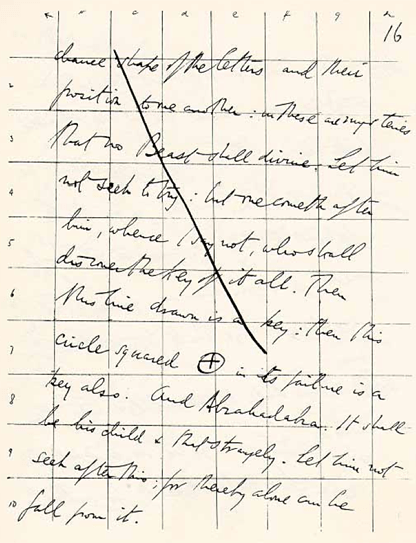 a b c d e f g h
16
chance shape of the letters and their
2
position to one another: in these are mysteries
3
that no Beast shall divine. Let him
4
not seek to try: but one cometh after
him, whence I say not, who shall
5
discover the Key of it all. Then
6
this line drawn is a key: then this
7
circle squared in its failure is a
8
key also. And Abrahadabra. It shall
be his child & that strangely. Let him not
9
seek after this; for thereby alone can he
10
fall from it.